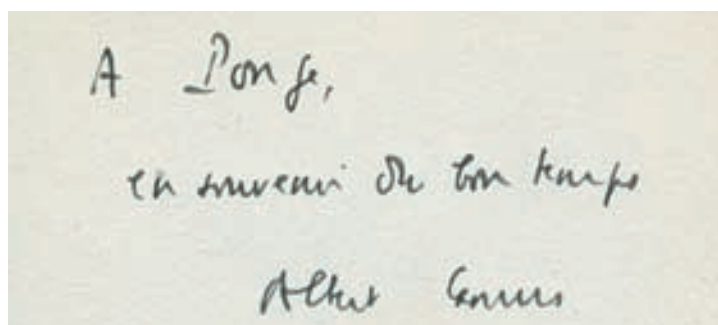 A Ponge,
en souvenir du bon temps
Albert Camus